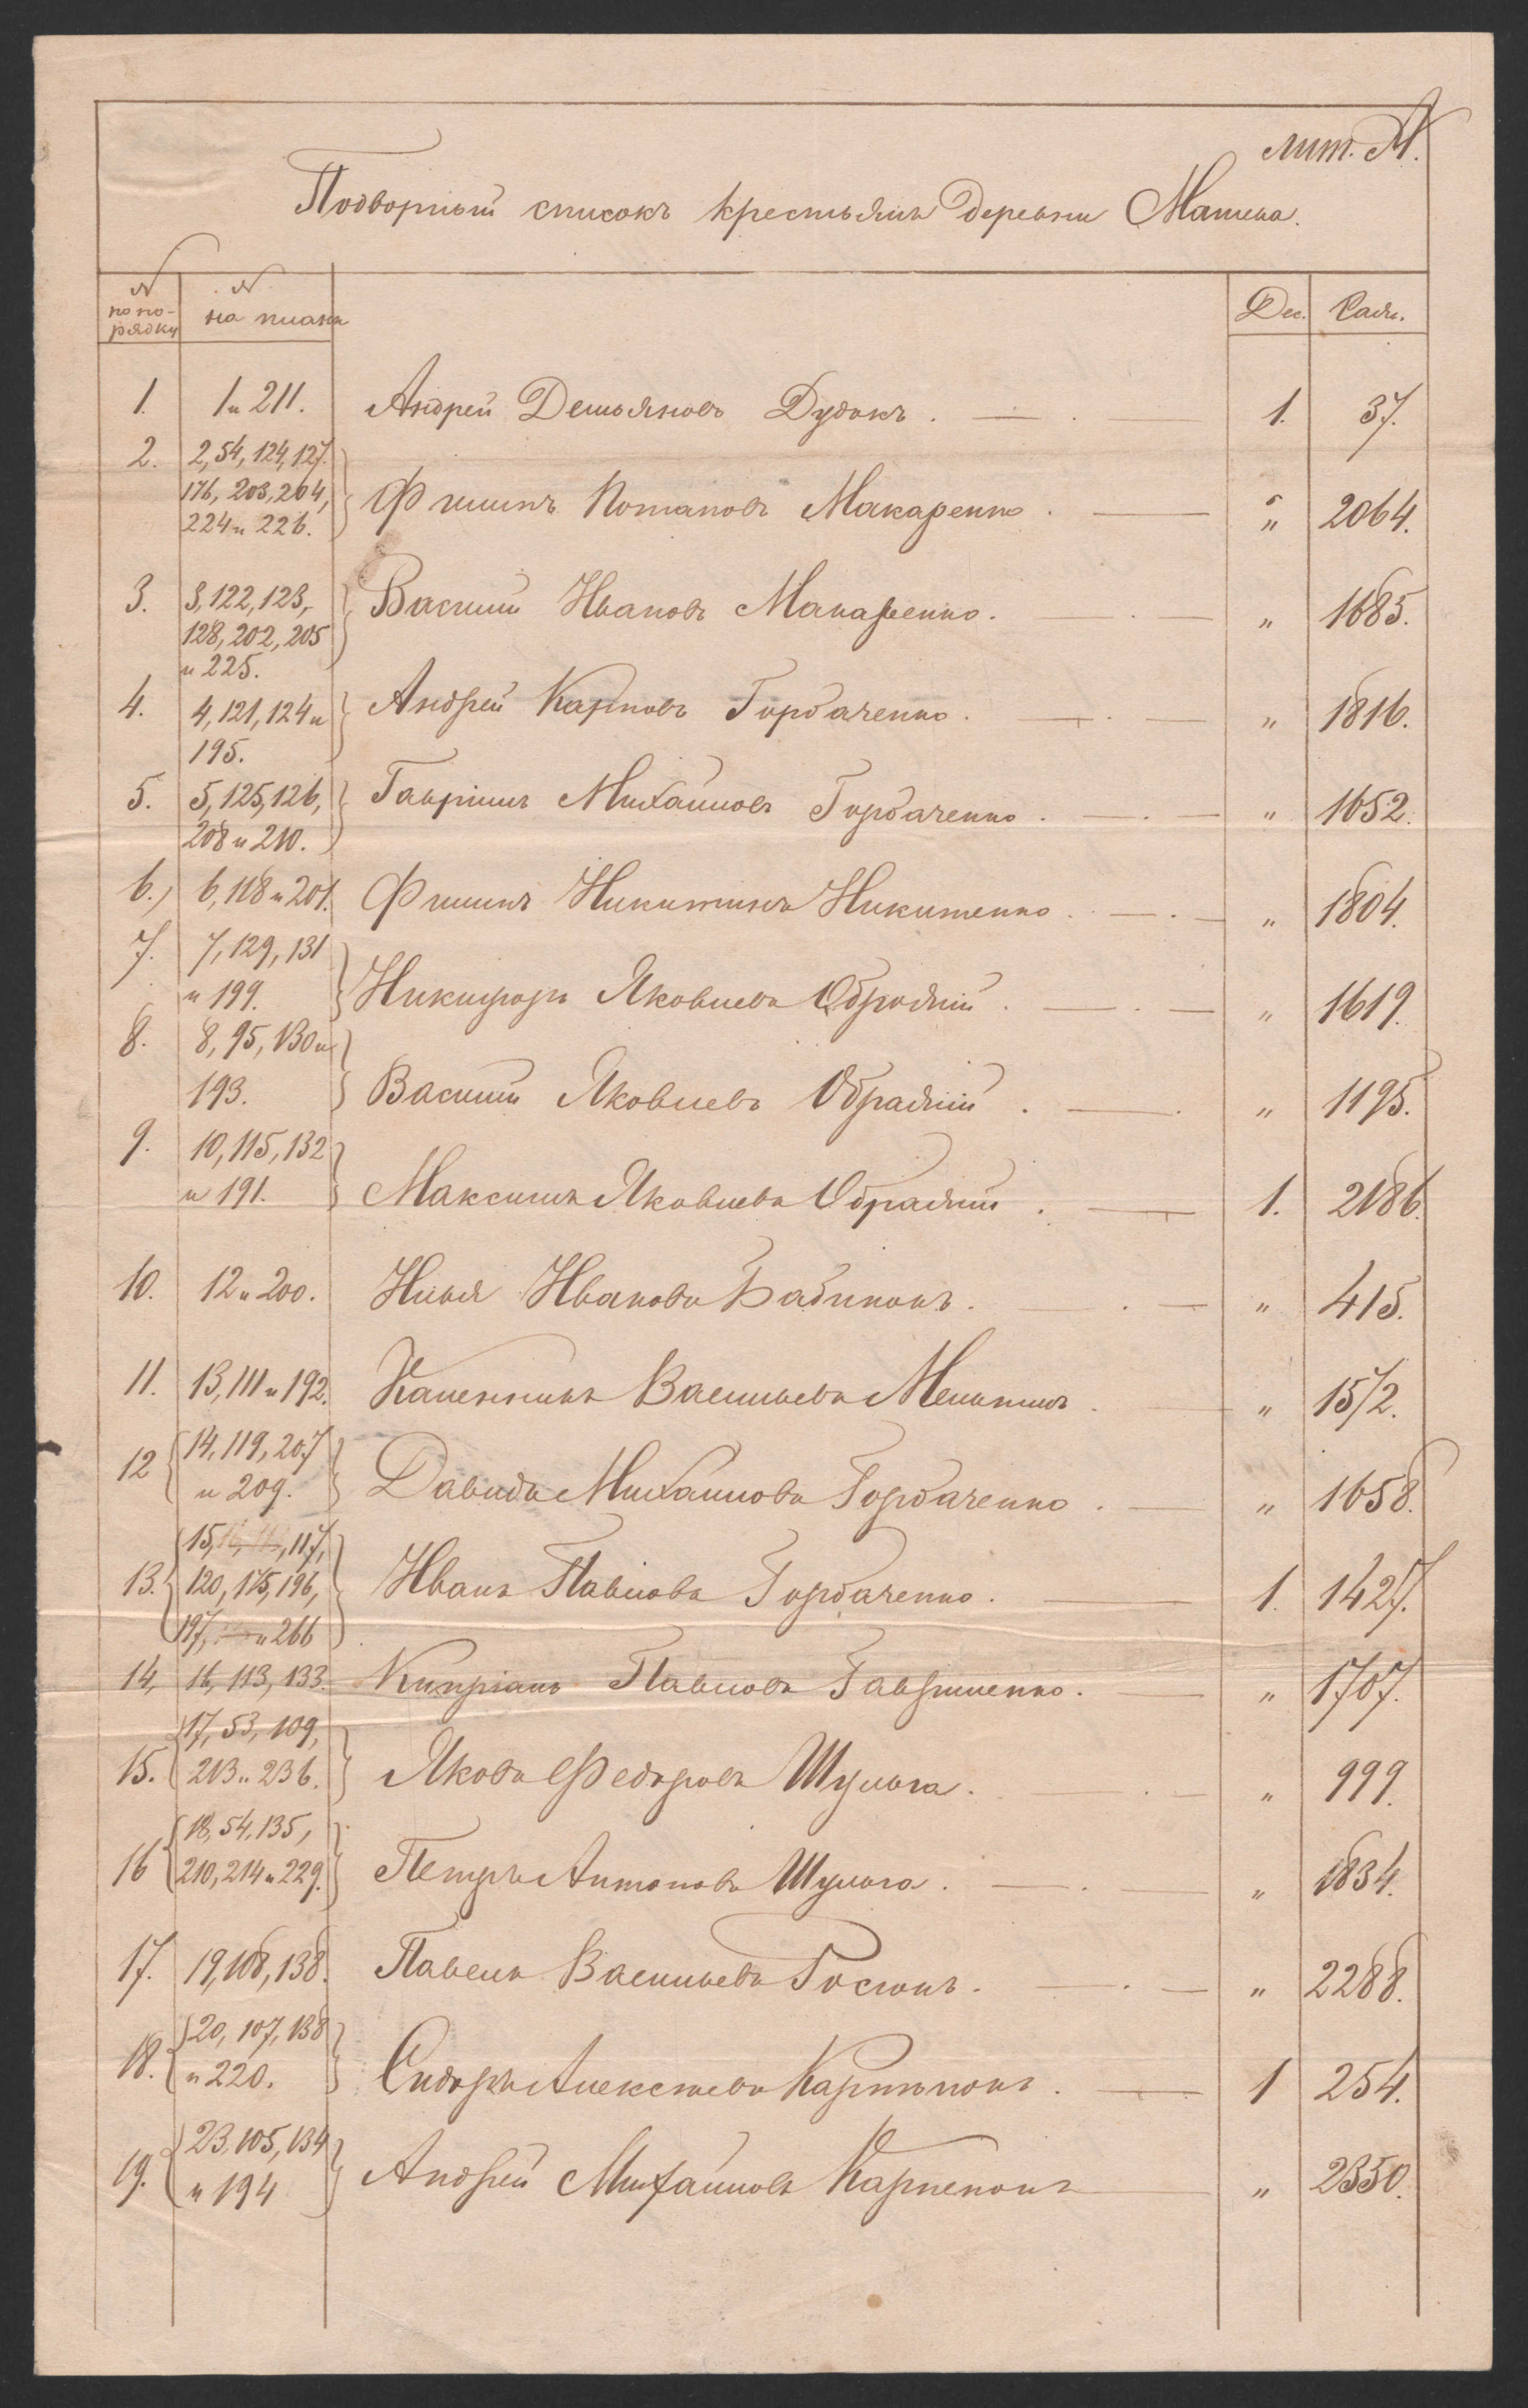 лит. А.
Подворный списокъ крестьянъ деревни Машева.
№ по порядку № на планѣ Дес. Саж.
1. 1 и 211. Андрей Демьяновъ Дудокъ. 1. 37.
2. 2, 54, 124, 127.
176, 203, 204, Филипъ Потаповъ Макаренко. " 2064.
224 и 226.
3. 3, 122, 123, Василий Ивановъ Макаренко. " 1685.
128, 202, 205
и 225.
4. 4, 121, 124 и Андрей Карповъ Горбаченко. " 1816.
195.
5. 5, 125, 126, Гавріилъ Михайловъ Горбаченко. " 1652.
208 и 210.
6. 6, 118 и 201. Филипъ Никитинъ Никитенко. " 1804.
7. 7, 129, 131
и 199. Никифоръ Яковлевъ Обрадній. " 1619.
8. 8, 95, 130 и
193. Василий Яковлевъ Обрадній. " 1195.
9. 10, 115, 132
и 191. Максимъ Яковлевъ Обрадній. 1. 2186.
10. 12 и 200. Илья Ивановъ Бабинокъ. " 415.
11. 13, 111 и 192. Каленникъ Васильевъ " 1572.
12 14, 119, 207
и 209. Давидъ Михайловъ Горбаченко. " 1658.
15, 117,
13. 120, 175, 196, Иванъ Павловъ Горбаченко. 1. 1427.
197, и 266
14, 16, 113, 133. Кипріанъ Павловъ Гавриленко. " 1707.
17, 53, 109,
15. 213 и 236. Яковъ Федоровъ Шульга. " 999.
18, 54, 135,
16 210, 214 и 229. Петръ Антоновъ Шульга. " 1834.
17. 19, 108, 138. Павелъ Васильевъ " 2288.
20, 107, 138
18. и 220. Сидоръ Алексѣевъ 1 254.
23, 105, 134
19. и 194 Андрей Михайловъ Карпенокъ " 2350.